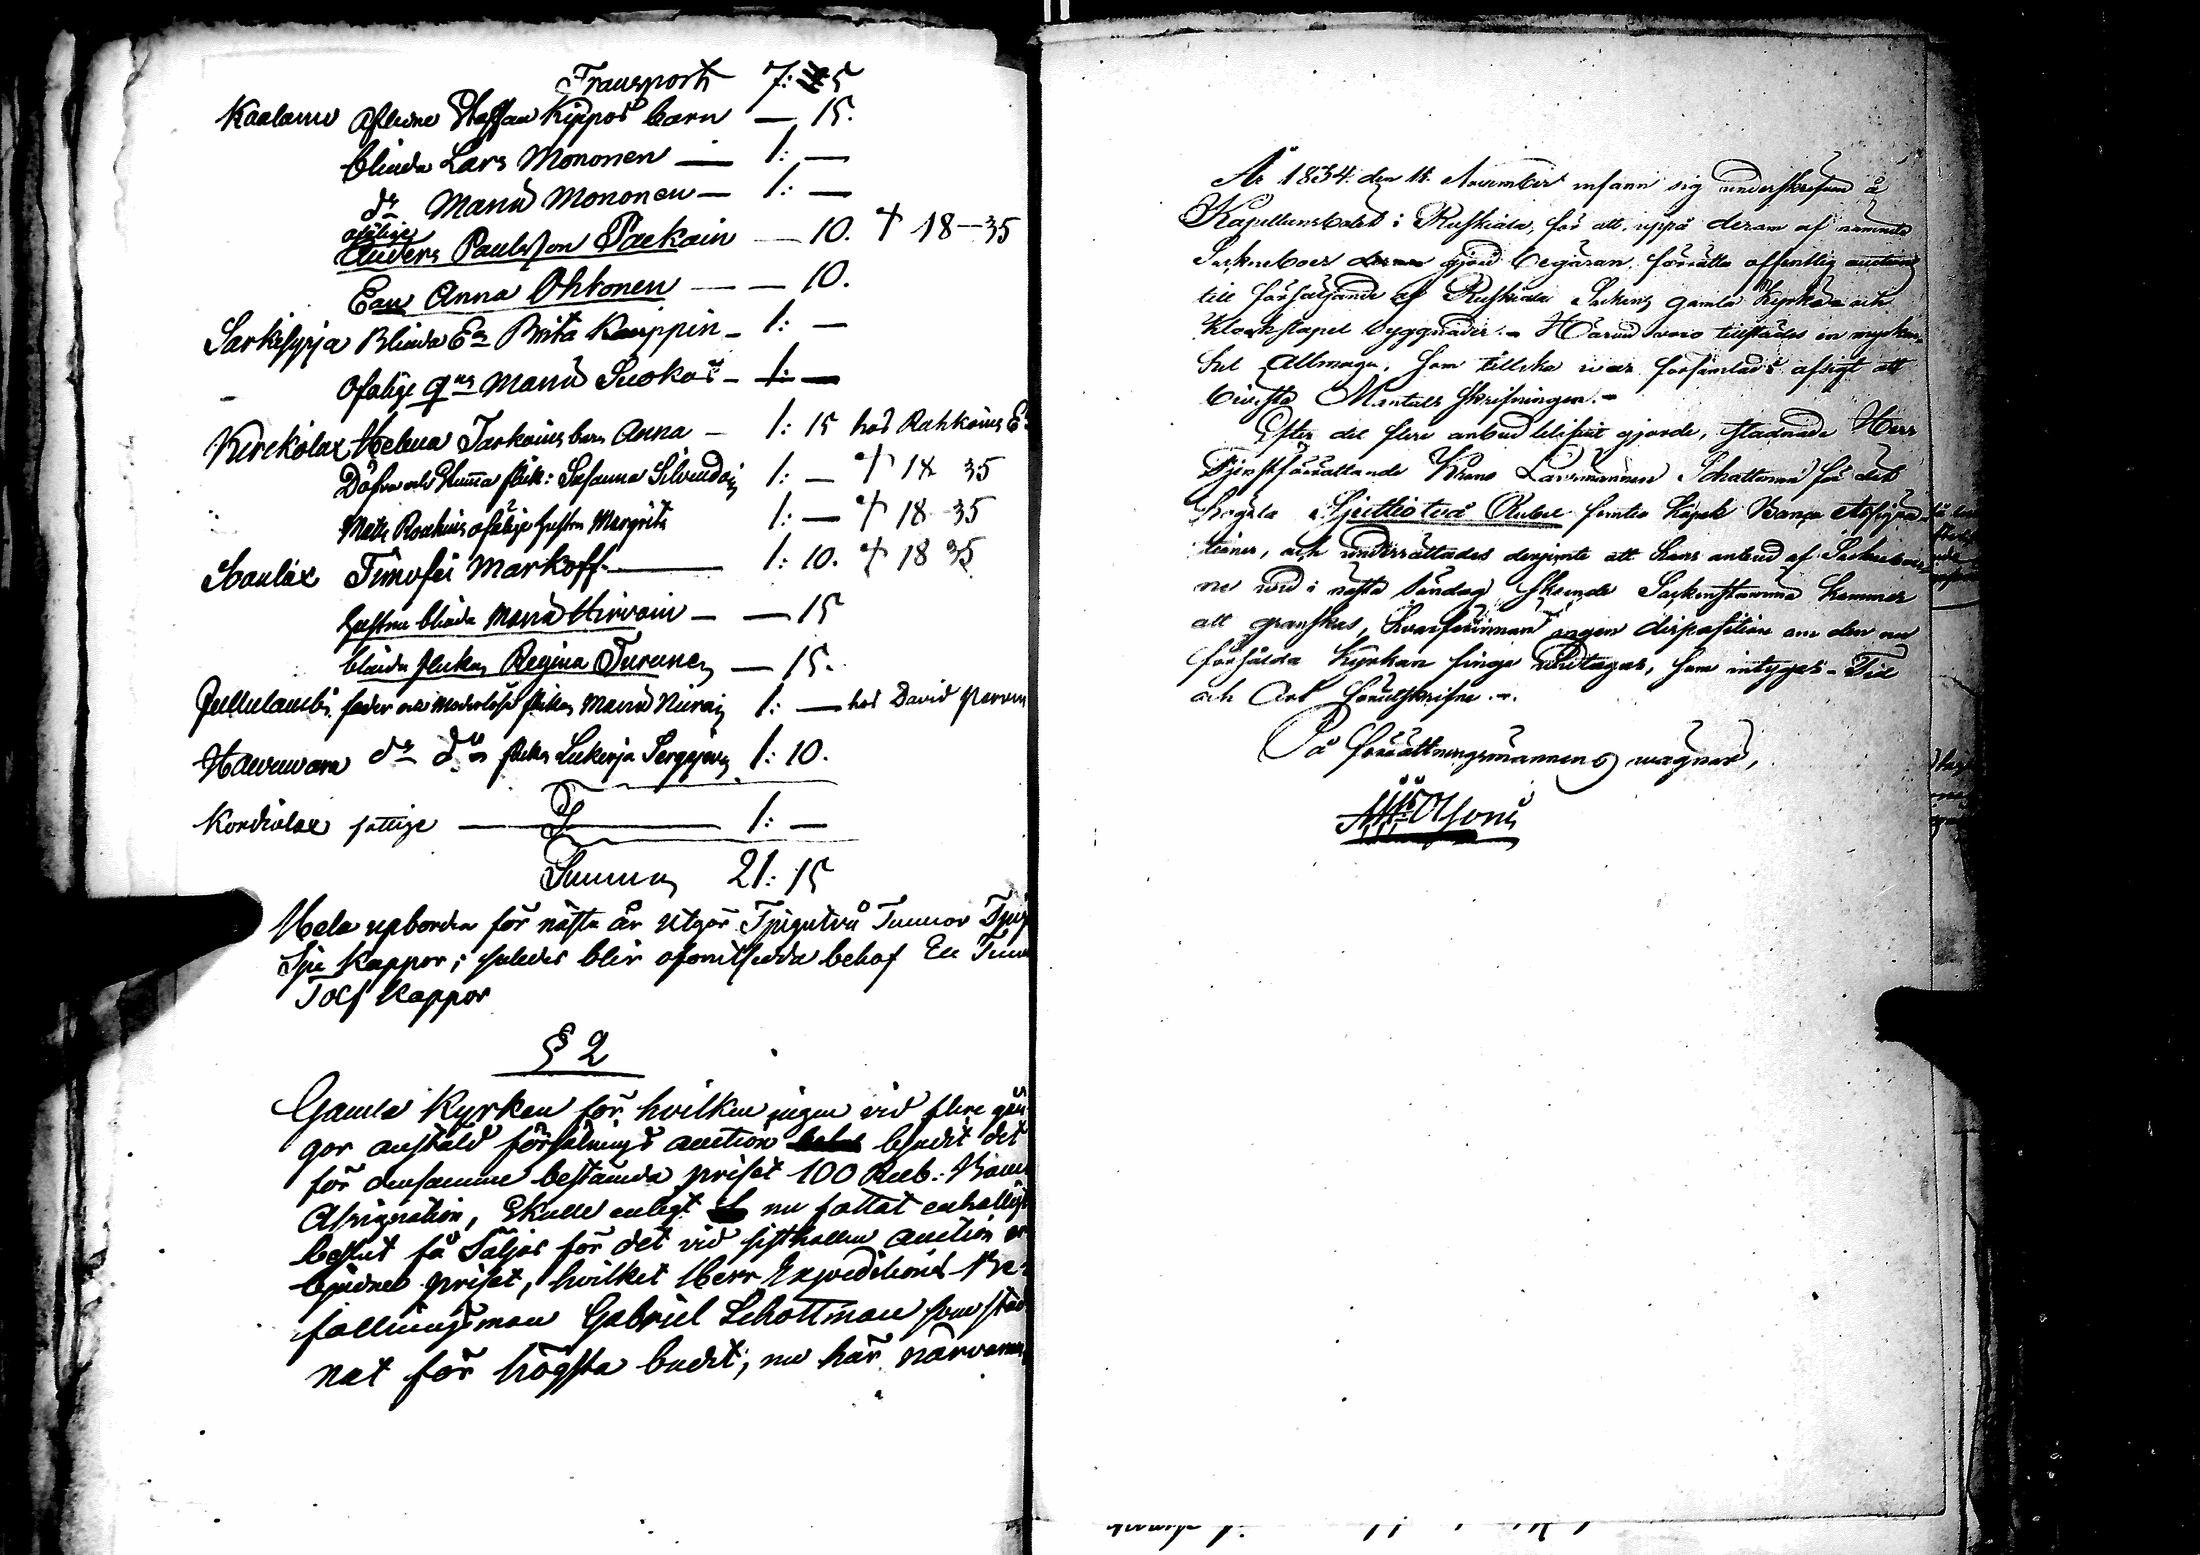 Transport 7: 5
Kaalamo Aflidne Staffan Kippos barn — 15.
blinda Lars Mononen — 1: —
do Mariä Mononen — 1: —
ofälige
Anders Paulsson Paekain — 10. † 18—35
Enn Anna Ohtonen — — 10.
Särkisyrja Blinda E Brita Kauppin — 1: —
Ofälige Mariä Suokas — 1: —
Kirckolax Helena Tarkains barn Anna — 1: 15 hos Rahkoins
Döfva och Stumma flick: Susanna Silvend 1: — † 18 35
Mats Roukins ofälige hustru Margrita 1: — † 18 35
Soanlax Timofei Markoff — 1: 10. † 18 35
hustru blinda Maria Hirvoin — — 15
blinda flickan Regina Turunen — 15.
Pullulambi fader och moderlösa flickan Maria 1: — hos David
Havuwara do do flickan Lukerja 1: 10.
Kordiolax fattige — 1: —
Summa 21: 15
Hela upborden för nästa år utgör Tjugutvå Tunnor
Sju Kappor; således blir oförmedda behof En
Tolf Kappor
§ 2
Gamla Kyrkan för hvilken ingen vid flere gån-
gor anstäld försälnings auction budit det
för densamme bestämda priset 100 Rub: Banco
Assignation, Skulle enligt nu fattat enhälligt
beslut få Säljas för det vid sisthållen auction
budne priset, hvilket Herr Expeditions Be-
fallningsman Gabriel Schottman som stad-
nat för högsta budet, nu här närvarande
År 1834. den 11. November infann sig underskrefven å
Kapellansbolet i Ruskiala, för att, uppå deraf nämnde
Socknebor gjord begäran, förrätta offentlig auction
till försäljande af Ruskiala Sockens gamla Kyrka och
Klockstapel byggnader. - Härvid voro tillstädes en mycken-
het Allmoge, som tillika var församlad i afsigt att
bevista Mantals skrifningen. -
Efter det flere anbud blifvit gjorde, stadnade Herr
Tjenstförrättande Krono Länsmannen Schottman för det
högsta Sjuttiotvå Rubel femtio kopek Banco Assigna-
tioner, och underrättades derjemte att hans anbud af Sockneboer-
ne vid i nästa Söndag skeende Sockenstämma kommer
att granskas, hvarförinnan ingen disposition om den nu
försålda Kyrkan finge vidtagas, som intygas - Tid
och Ort förutskrifne. -
På förrättningsmannens vägnar,